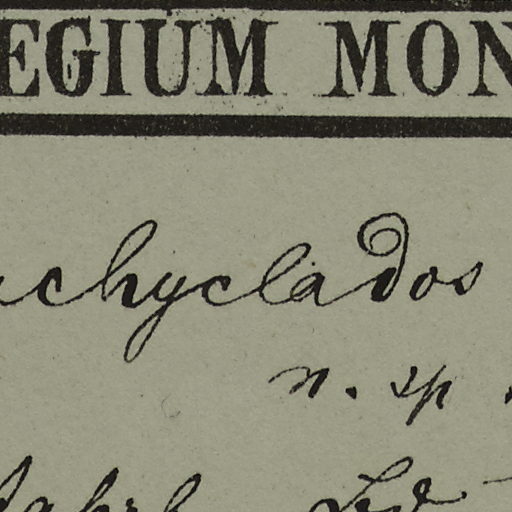 EGIUM MON
achyclados
n. sp.